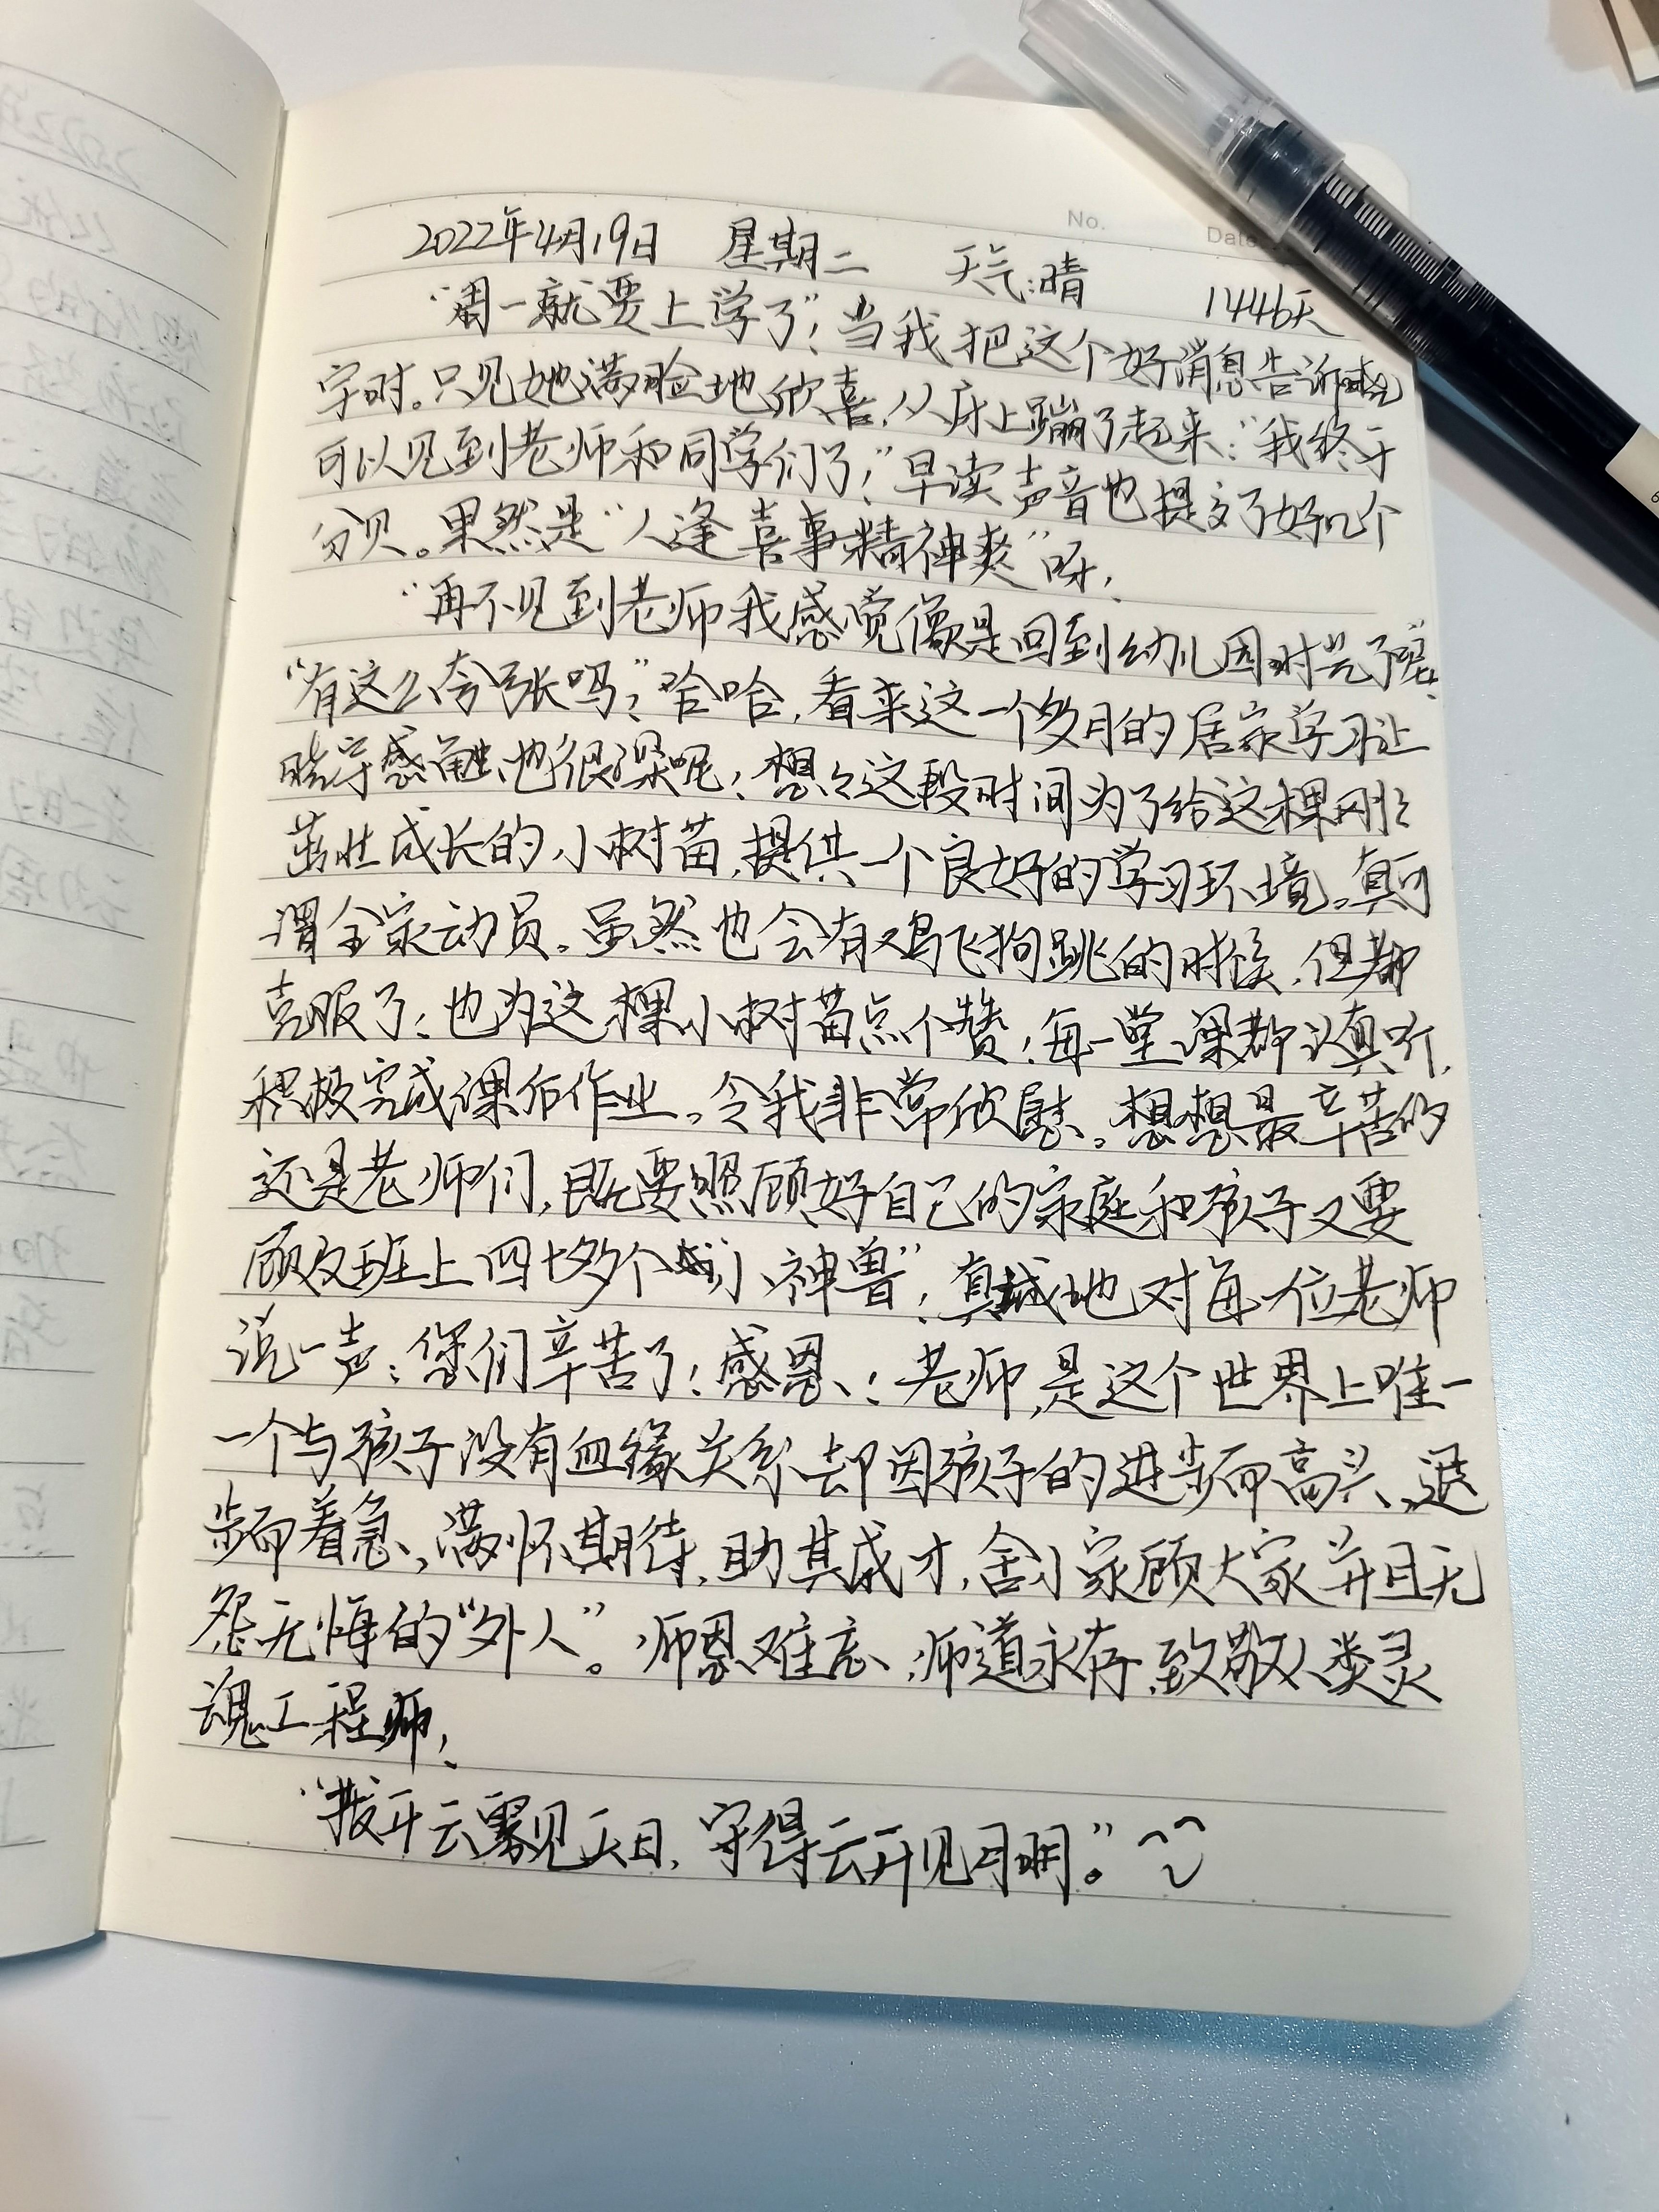 No.
Date
2022年4月19日 星期二 天气:晴 1446天
“周一就要上学了”!当我把这个好消息告诉晓
宇时。只见她满脸地欣喜,从床上蹦了起来:“我终于
可以见到老师和同学们了!”早读声音也提高了好几个
分贝。果然是“人逢喜事精神爽”呀!
“再不见到老师我感觉像是回到幼儿园时光了呢”
“有这么夸张吗?”哈哈,看来这一个多月的居家学习让
晓宇感触也很深呢!想々这段时间为了给这棵刚々
茁壮成长的小树苗,提供一个良好的学习环境。真可
谓全家动员。虽然也会有鸡飞狗跳的时候,但都
克服了!也为这棵小树苗点个赞!每一堂课都认真听,
积极完成课后作业。令我非常欣慰。想想最辛苦的
还是老师们,既要照顾好自己的家庭和孩子又要
顾及班上四十多个“小神兽”!真诚地对每一位老师
说一声:您们辛苦了!感恩!老师,是这个世界上唯一
一个与孩子没有血缘关系却因孩子的进步而高兴、退
步而着急,满怀期待,助其成才,舍小家顾大家并且无
怨无悔的“外人”。师恩难忘,师道永存,致敬人类灵
魂工程师!
“拨开云雾见天日,守得云开见月明。”